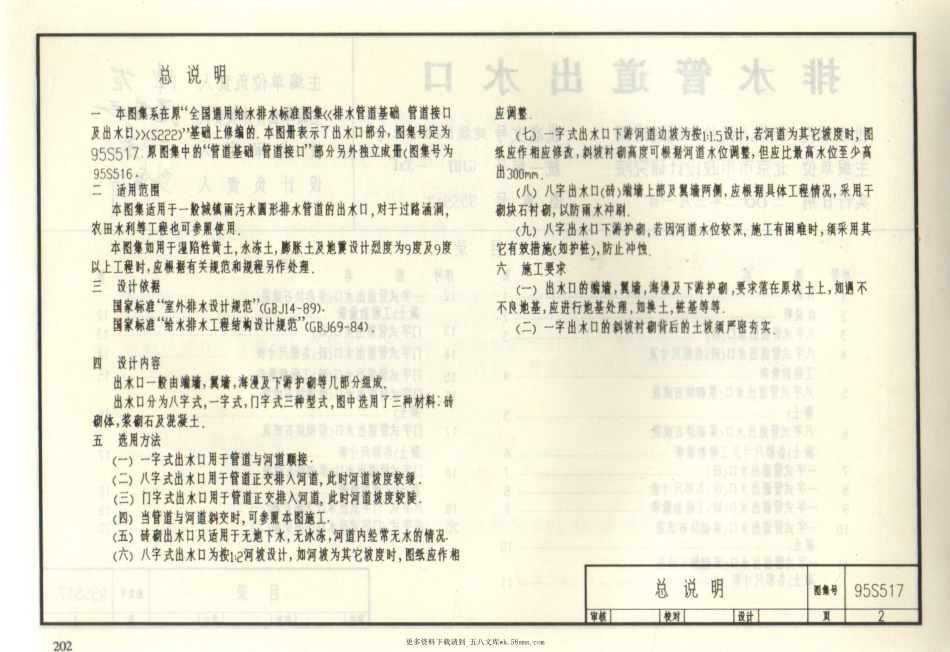 总说明
一 本图集系在原“全国通用给水排水标准图集《排水管道基础 管道接口
及出水口》(S222)”基础上修编的.本图册表示了出水口部分,图集号定为
95S517.原图集中的“管道基础 管道接口”部分另外独立成册(图集号为
95S516.
二 适用范围
本图集适用于一般城镇雨污水圆形排水管道的出水口,对于过路涵洞,
农田水利等工程也可参照使用.
本图集如用于湿陷性黄土,永冻土,膨胀土及地震设计烈度为9度及9度
以上工程时,应根据有关规范和规程另作处理.
三 设计依据
国家标准“室外排水设计规范”(GBJ14-89).
国家标准“给水排水工程结构设计规范”(GBJ69-84).
四 设计内容
出水口一般由端墙,翼墙,海漫及下游护砌等几部分组成.
出水口分为八字式,一字式,门字式三种型式,图中选用了三种材料:砖
砌体,浆砌石及混凝土.
五 选用方法
(一) 一字式出水口用于管道与河道顺接.
(二) 八字式出水口用于管道正交排入河道,此时河道坡度较缓.
(三) 门字式出水口用于管道正交排入河道,此时河道坡度较陡.
(四) 当管道与河道斜交时,可参照本图施工.
(五) 砖砌出水口只适用于无地下水,无冰冻,河道内经常无水的情况.
(六) 八字式出水口为按1:2河坡设计,如河坡为其它坡度时,图纸应作相
应调整.
(七) 一字式出水口下游河道边坡为按1:1.5设计,若河道为其它坡度时,图
纸应作相应修改,斜坡衬砌高度可根据河道水位调整,但应比最高水位至少高
出300mm.
(八) 八字出水口(砖)端墙上部及翼墙两侧,应根据具体工程情况,采用干
砌块石衬砌,以防雨水冲刷.
(九) 八字出水口下游护砌,若因河道水位较深,施工有困难时,须采用其
它有效措施(如护桩),防止冲蚀.
六 施工要求
(一) 出水口的端墙,翼墙,海漫及下游护砌,要求落在原状土上,如遇不
不良地基,应进行地基处理,如换土,桩基等等.
(二) 一字出水口的斜坡衬砌背后的土坡须严密夯实.
总说明
图集号
95S517
审核
校对
设计
页
2
202
更多资料下载请到 五八文库wk.58sms.com